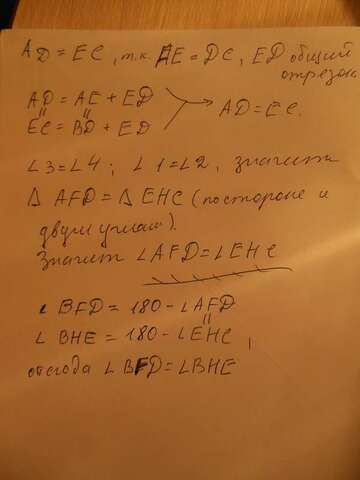 AD = EC, т.к. AE = DC, ED общий
отрезок
AD = AE + ED
EC = BD + ED
AD = EC.
∠3 = ∠4; ∠1 = ∠2, значит
Δ AFD = Δ EHC (по стороне и
двум углам).
Значит ∠AFD = ∠EHC
∠ BFD = 180 - ∠AFD
∠ BHE = 180 - ∠EHC,
отсюда ∠ BFD = ∠BHE